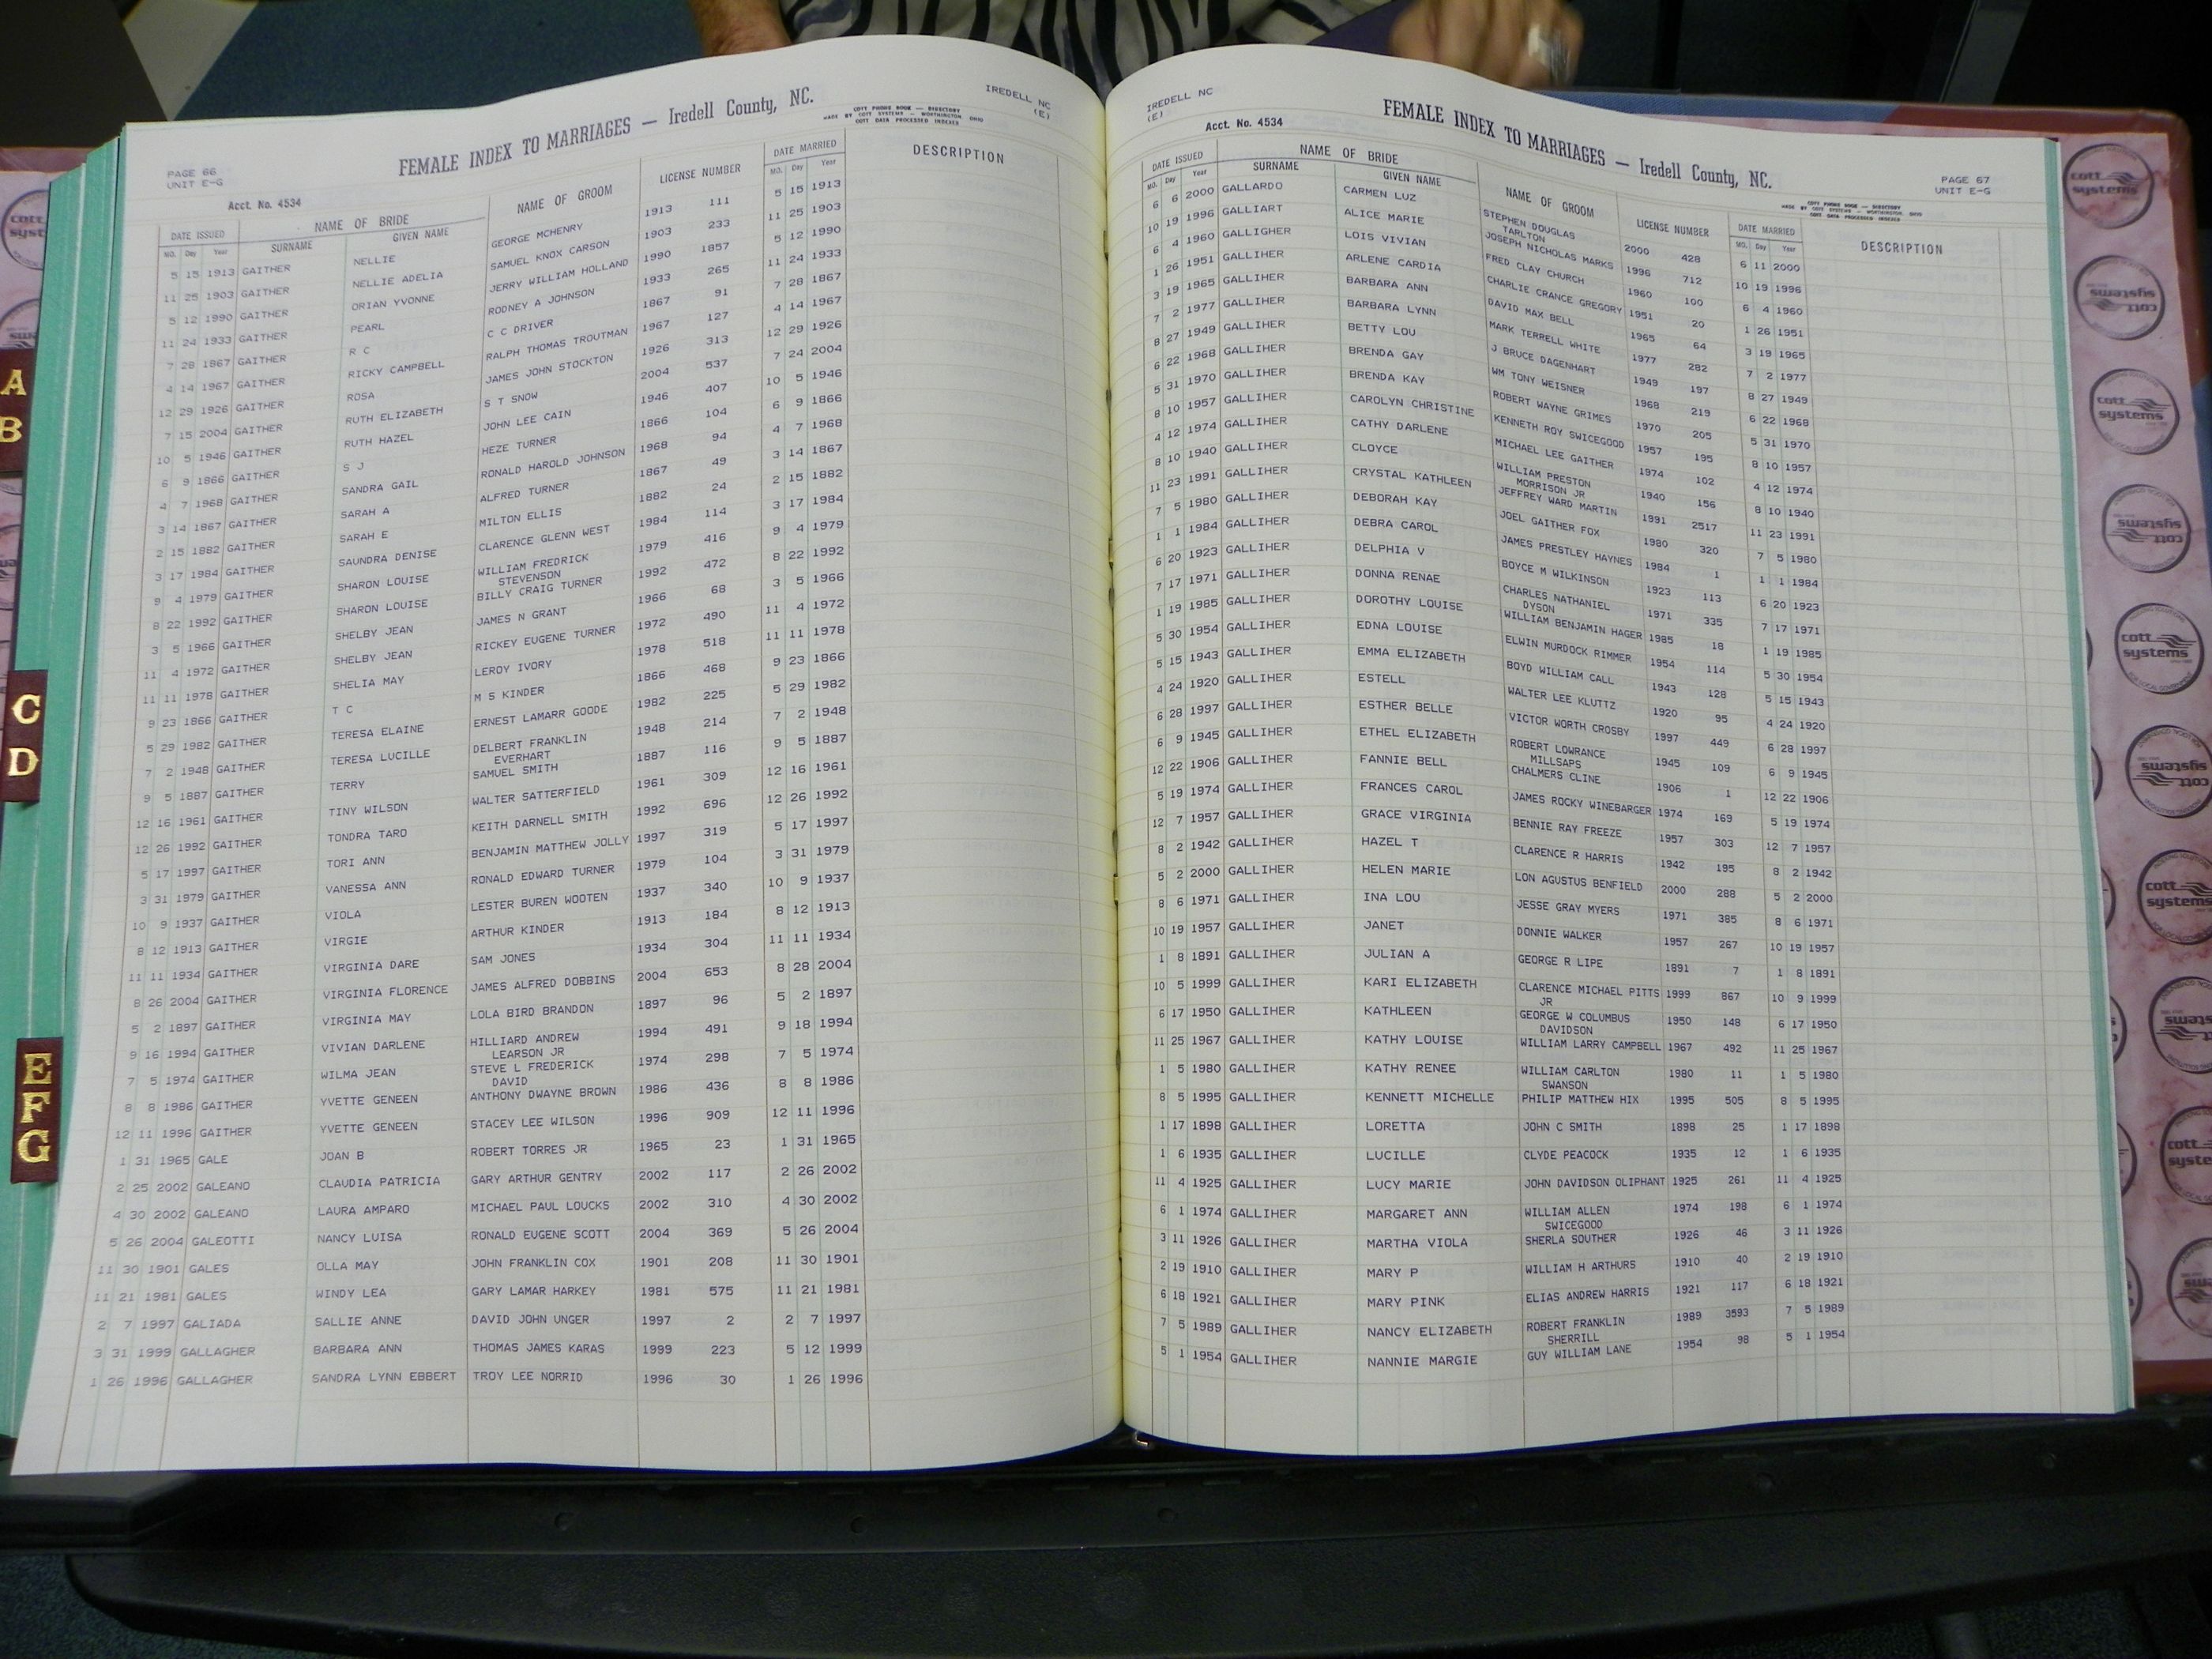 IREDELL NC
(E)
FEMALE INDEX TO MARRIAGES — Iredell County, NC.
COTT PHONE BOOK — DIRECTORY
MADE BY COTT SYSTEMS — WORTHINGTON OHIO
COTT DATA PROCESSED INDEXES
PAGE 66
UNIT E-G
Acct. No. 4534
DATE ISSUED NAME OF BRIDE NAME OF GROOM LICENSE NUMBER DATE MARRIED DESCRIPTION
MO. Day Year SURNAME GIVEN NAME MO. Day Year
5 15 1913 GAITHER NELLIE GEORGE MCHENRY 1913 111 5 15 1913
11 25 1903 GAITHER NELLIE ADELIA SAMUEL KNOX CARSON 1903 233 11 25 1903
5 12 1990 GAITHER ORIAN YVONNE JERRY WILLIAM HOLLAND 1990 1857 5 12 1990
11 24 1933 GAITHER PEARL RODNEY A JOHNSON 1933 265 11 24 1933
7 28 1867 GAITHER R C C C DRIVER 1867 91 7 28 1867
4 14 1967 GAITHER RICKY CAMPBELL RALPH THOMAS TROUTMAN 1967 127 4 14 1967
12 29 1926 GAITHER ROSA JAMES JOHN STOCKTON 1926 313 12 29 1926
7 15 2004 GAITHER RUTH ELIZABETH S T SNOW 2004 537 7 24 2004
10 5 1946 GAITHER RUTH HAZEL JOHN LEE CAIN 1946 407 10 5 1946
6 9 1866 GAITHER S J HEZE TURNER 1866 104 6 9 1866
4 7 1968 GAITHER SANDRA GAIL RONALD HAROLD JOHNSON 1968 94 4 7 1968
3 14 1867 GAITHER SARAH A ALFRED TURNER 1867 49 3 14 1867
2 15 1882 GAITHER SARAH E MILTON ELLIS 1882 24 2 15 1882
3 17 1984 GAITHER SAUNDRA DENISE CLARENCE GLENN WEST 1984 114 3 17 1984
9 4 1979 GAITHER SHARON LOUISE WILLIAM FREDRICK 1979 416 9 4 1979
STEVENSON
8 22 1992 GAITHER SHARON LOUISE BILLY CRAIG TURNER 1992 472 8 22 1992
3 5 1966 GAITHER SHELBY JEAN JAMES N GRANT 1966 68 3 5 1966
11 4 1972 GAITHER SHELBY JEAN RICKEY EUGENE TURNER 1972 490 11 4 1972
11 11 1978 GAITHER SHELIA MAY LEROY IVORY 1978 518 11 11 1978
9 23 1866 GAITHER T C M S KINDER 1866 468 9 23 1866
5 29 1982 GAITHER TERESA ELAINE ERNEST LAMARR GOODE 1982 225 5 29 1982
7 2 1948 GAITHER TERESA LUCILLE DELBERT FRANKLIN 1948 214 7 2 1948
EVERHART
9 5 1887 GAITHER TERRY SAMUEL SMITH 1887 116 9 5 1887
12 16 1961 GAITHER TINY WILSON WALTER SATTERFIELD 1961 309 12 16 1961
12 26 1992 GAITHER TONDRA TARO KEITH DARNELL SMITH 1992 696 12 26 1992
5 17 1997 GAITHER TORI ANN BENJAMIN MATTHEW JOLLY 1997 319 5 17 1997
3 31 1979 GAITHER VANESSA ANN RONALD EDWARD TURNER 1979 104 3 31 1979
10 9 1937 GAITHER VIOLA LESTER BUREN WOOTEN 1937 340 10 9 1937
8 12 1913 GAITHER VIRGIE ARTHUR KINDER 1913 184 8 12 1913
11 11 1934 GAITHER VIRGINIA DARE SAM JONES 1934 304 11 11 1934
8 26 2004 GAITHER VIRGINIA FLORENCE JAMES ALFRED DOBBINS 2004 653 8 28 2004
5 2 1897 GAITHER VIRGINIA MAY LOLA BIRD BRANDON 1897 96 5 2 1897
9 16 1994 GAITHER VIVIAN DARLENE HILLIARD ANDREW 1994 491 9 18 1994
LEARSON JR
7 5 1974 GAITHER WILMA JEAN STEVE L FREDERICK 1974 298 7 5 1974
DAVID
8 8 1986 GAITHER YVETTE GENEEN ANTHONY DWAYNE BROWN 1986 436 8 8 1986
12 11 1996 GAITHER YVETTE GENEEN STACEY LEE WILSON 1996 909 12 11 1996
1 31 1965 GALE JOAN B ROBERT TORRES JR 1965 23 1 31 1965
2 25 2002 GALEANO CLAUDIA PATRICIA GARY ARTHUR GENTRY 2002 117 2 26 2002
4 30 2002 GALEANO LAURA AMPARO MICHAEL PAUL LOUCKS 2002 310 4 30 2002
5 26 2004 GALEOTTI NANCY LUISA RONALD EUGENE SCOTT 2004 369 5 26 2004
11 30 1901 GALES OLLA MAY JOHN FRANKLIN COX 1901 208 11 30 1901
11 21 1981 GALES WINDY LEA GARY LAMAR HARKEY 1981 575 11 21 1981
2 7 1997 GALIADA SALLIE ANNE DAVID JOHN UNGER 1997 2 2 7 1997
3 31 1999 GALLAGHER BARBARA ANN THOMAS JAMES KARAS 1999 223 5 12 1999
1 26 1996 GALLAGHER SANDRA LYNN EBBERT TROY LEE NORRID 1996 30 1 26 1996
IREDELL NC
(E)
FEMALE INDEX TO MARRIAGES — Iredell County, NC.
COTT PHONE BOOK — DIRECTORY
MADE BY COTT SYSTEMS — WORTHINGTON OHIO
COTT DATA PROCESSED INDEXES
PAGE 67
UNIT E-G
Acct. No. 4534
DATE ISSUED NAME OF BRIDE NAME OF GROOM LICENSE NUMBER DATE MARRIED DESCRIPTION
MO. Day Year SURNAME GIVEN NAME MO. Day Year
6 6 2000 GALLARDO CARMEN LUZ STEPHEN DOUGLAS 2000 428 6 11 2000
TARLTON
10 19 1996 GALLIART ALICE MARIE JOSEPH NICHOLAS MARKS 1996 712 10 19 1996
6 4 1960 GALLIGHER LOIS VIVIAN FRED CLAY CHURCH 1960 100 6 4 1960
1 26 1951 GALLIHER ARLENE CARDIA CHARLIE CRANCE GREGORY 1951 20 1 26 1951
3 19 1965 GALLIHER BARBARA ANN DAVID MAX BELL 1965 64 3 19 1965
7 2 1977 GALLIHER BARBARA LYNN MARK TERRELL WHITE 1977 282 7 2 1977
8 27 1949 GALLIHER BETTY LOU J BRUCE DAGENHART 1949 197 8 27 1949
6 22 1968 GALLIHER BRENDA GAY WM TONY WEISNER 1968 219 6 22 1968
5 31 1970 GALLIHER BRENDA KAY ROBERT WAYNE GRIMES 1970 205 5 31 1970
8 10 1957 GALLIHER CAROLYN CHRISTINE KENNETH ROY SWICEGOOD 1957 195 8 10 1957
4 12 1974 GALLIHER CATHY DARLENE MICHAEL LEE GAITHER 1974 102 4 12 1974
8 10 1940 GALLIHER CLOYCE WILLIAM PRESTON 1940 156 8 10 1940
MORRISON JR
11 23 1991 GALLIHER CRYSTAL KATHLEEN JEFFREY WARD MARTIN 1991 2517 11 23 1991
7 5 1980 GALLIHER DEBORAH KAY JOEL GAITHER FOX 1980 320 7 5 1980
1 1 1984 GALLIHER DEBRA CAROL JAMES PRESTLEY HAYNES 1984 1 1 1 1984
6 20 1923 GALLIHER DELPHIA V BOYCE M WILKINSON 1923 113 6 20 1923
7 17 1971 GALLIHER DONNA RENAE CHARLES NATHANIEL 1971 335 7 17 1971
DYSON
1 19 1985 GALLIHER DOROTHY LOUISE WILLIAM BENJAMIN HAGER 1985 18 1 19 1985
5 30 1954 GALLIHER EDNA LOUISE ELWIN MURDOCK RIMMER 1954 114 5 30 1954
5 15 1943 GALLIHER EMMA ELIZABETH BOYD WILLIAM CALL 1943 128 5 15 1943
4 24 1920 GALLIHER ESTELL WALTER LEE KLUTTZ 1920 95 4 24 1920
6 28 1997 GALLIHER ESTHER BELLE VICTOR WORTH CROSBY 1997 449 6 28 1997
6 9 1945 GALLIHER ETHEL ELIZABETH ROBERT LOWRANCE 1945 109 6 9 1945
MILLSAPS
12 22 1906 GALLIHER FANNIE BELL CHALMERS CLINE 1906 1 12 22 1906
5 19 1974 GALLIHER FRANCES CAROL JAMES ROCKY WINEBARGER 1974 169 5 19 1974
12 7 1957 GALLIHER GRACE VIRGINIA BENNIE RAY FREEZE 1957 303 12 7 1957
8 2 1942 GALLIHER HAZEL T CLARENCE R HARRIS 1942 195 8 2 1942
5 2 2000 GALLIHER HELEN MARIE LON AGUSTUS BENFIELD 2000 288 5 2 2000
8 6 1971 GALLIHER INA LOU JESSE GRAY MYERS 1971 385 8 6 1971
10 19 1957 GALLIHER JANET DONNIE WALKER 1957 267 10 19 1957
1 8 1891 GALLIHER JULIAN A GEORGE R LIPE 1891 7 1 8 1891
10 5 1999 GALLIHER KARI ELIZABETH CLARENCE MICHAEL PITTS 1999 867 10 9 1999
JR
6 17 1950 GALLIHER KATHLEEN GEORGE W COLUMBUS 1950 148 6 17 1950
DAVIDSON
11 25 1967 GALLIHER KATHY LOUISE WILLIAM LARRY CAMPBELL 1967 492 11 25 1967
1 5 1980 GALLIHER KATHY RENEE WILLIAM CARLTON 1980 11 1 5 1980
SWANSON
8 5 1995 GALLIHER KENNETT MICHELLE PHILIP MATTHEW HIX 1995 505 8 5 1995
1 17 1898 GALLIHER LORETTA JOHN C SMITH 1898 25 1 17 1898
1 6 1935 GALLIHER LUCILLE CLYDE PEACOCK 1935 12 1 6 1935
11 4 1925 GALLIHER LUCY MARIE JOHN DAVIDSON OLIPHANT 1925 261 11 4 1925
6 1 1974 GALLIHER MARGARET ANN WILLIAM ALLEN 1974 198 6 1 1974
SWICEGOOD
3 11 1926 GALLIHER MARTHA VIOLA SHERLA SOUTHER 1926 46 3 11 1926
2 19 1910 GALLIHER MARY P WILLIAM H ARTHURS 1910 40 2 19 1910
6 18 1921 GALLIHER MARY PINK ELIAS ANDREW HARRIS 1921 117 6 18 1921
7 5 1989 GALLIHER NANCY ELIZABETH ROBERT FRANKLIN 1989 3593 7 5 1989
SHERRILL
5 1 1954 GALLIHER NANNIE MARGIE GUY WILLIAM LANE 1954 98 5 1 1954
A
B
C
D
E
F
G
cott
systems
cott
systems
cott
systems
cott
systems
cott
systems
cott
systems
cott
systems